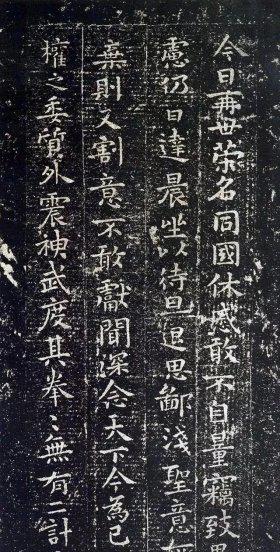 今日再世荣名同國休慼敢不自量竊致
慮仍日達晨坐以待旦退思鄙淺聖意
棄則又割意不敢獻聞深念天下今為已
權之委質外震神武度其拳〻無有二計